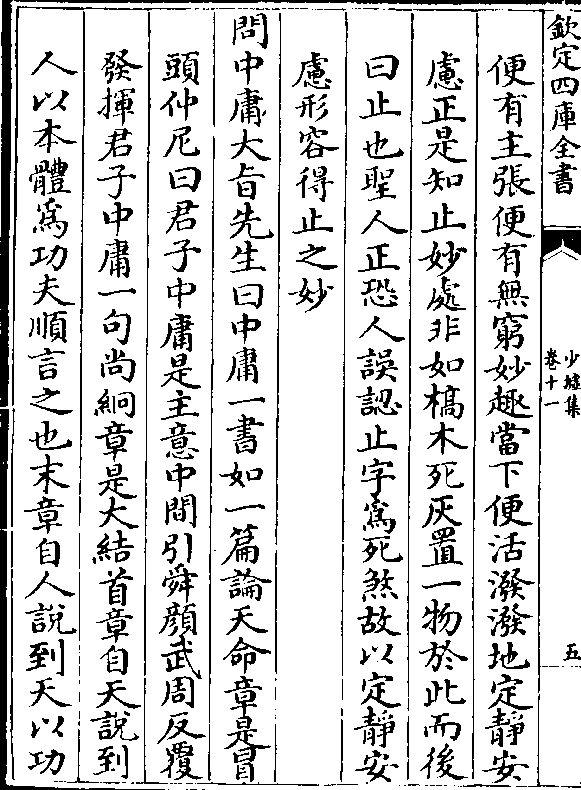 欽定四庫全書
少墟集
卷十一
五
便有主張便有無窮妙趣當下便活潑潑地定靜安
慮正是知止妙處非如槁木死灰置一物於此而後
曰止也聖人正恐人誤認止字爲死煞故以定靜安
慮形容得止之妙
問中庸大旨先生曰中庸一書如一篇論天命章是冒
頭仲尼曰君子中庸是主意中間引舜顔武周反覆
發揮君子中庸一句尚絅章是大結首章自天說到
人以本體爲功夫順言之也末章自人說到天以功